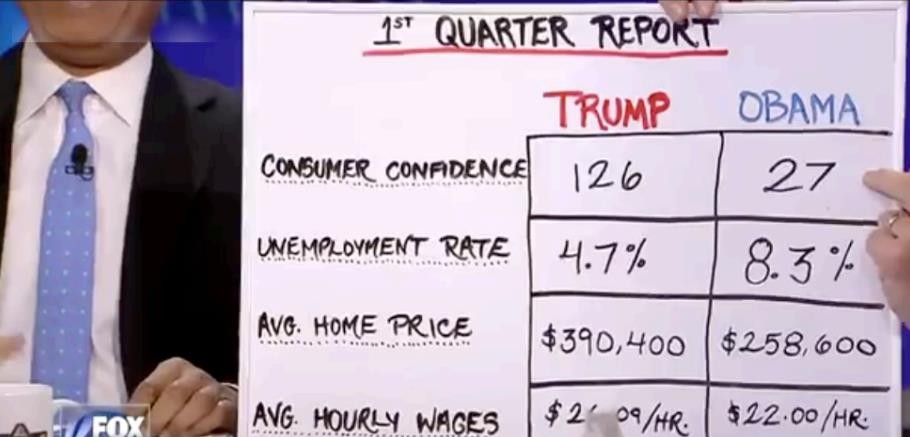 1ST QUARTER REPORT
TRUMP OBAMA
CONSUMER CONFIDENCE 126 27
UNEMPLOYMENT RATE 4.7% 8.3%
AVG. HOME PRICE $390,400 $258,600
AVG. HOURLY WAGES /HR. $22.00/HR.
FOX